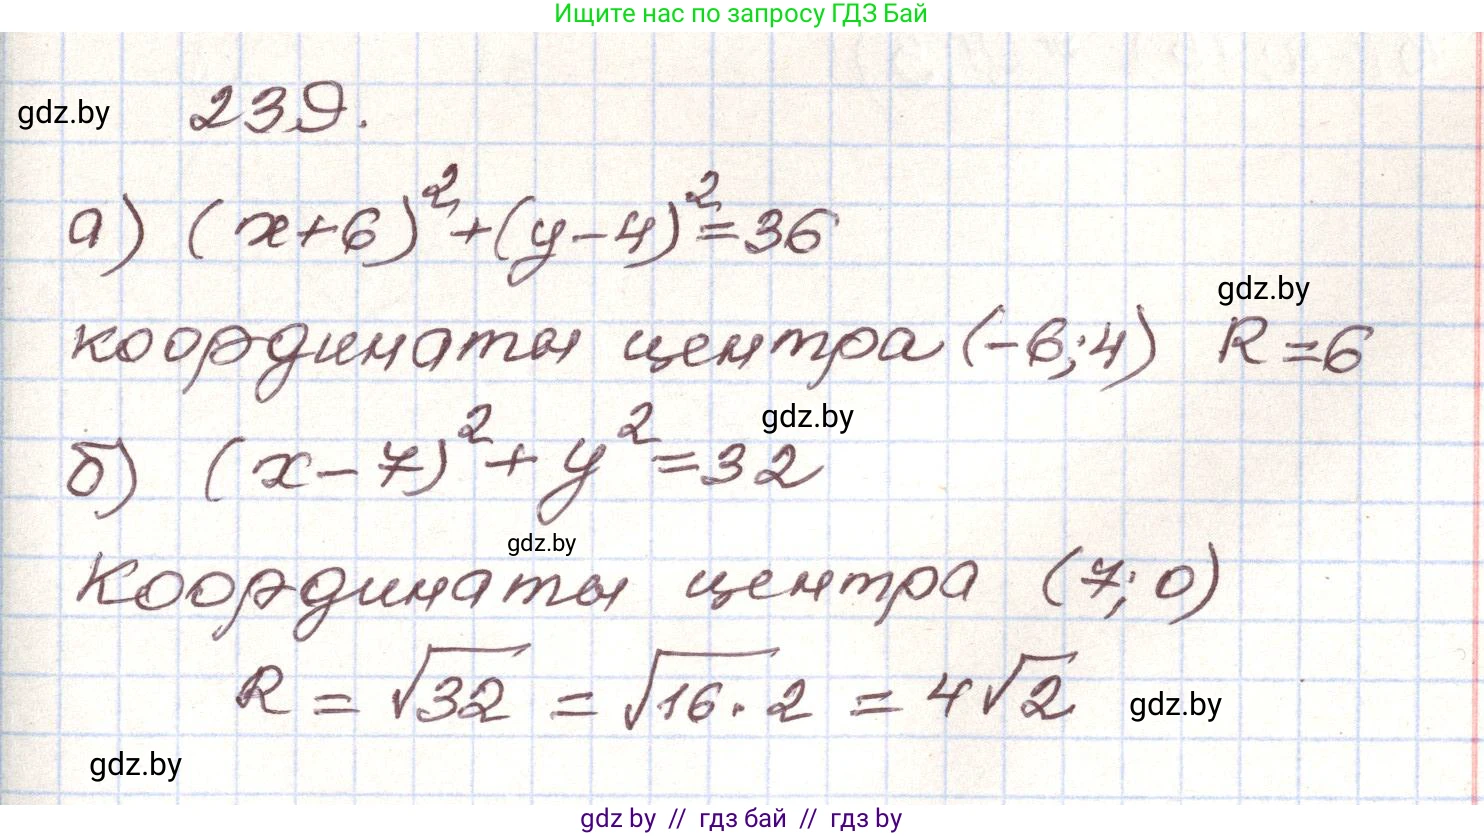 Ищите нас по запросу ГДЗ Бай
gdz.by
239.
а) (x+6)²+(y-4)²=36
gdz.by
координаты центра (-6;4) R=6
gdz.by
б) (x-7)²+y²=32
gdz.by
Координаты центра (7;0)
R=√32=√16·2=4√2
gdz.by
gdz.by
gdz by // гдз бай // гдз by